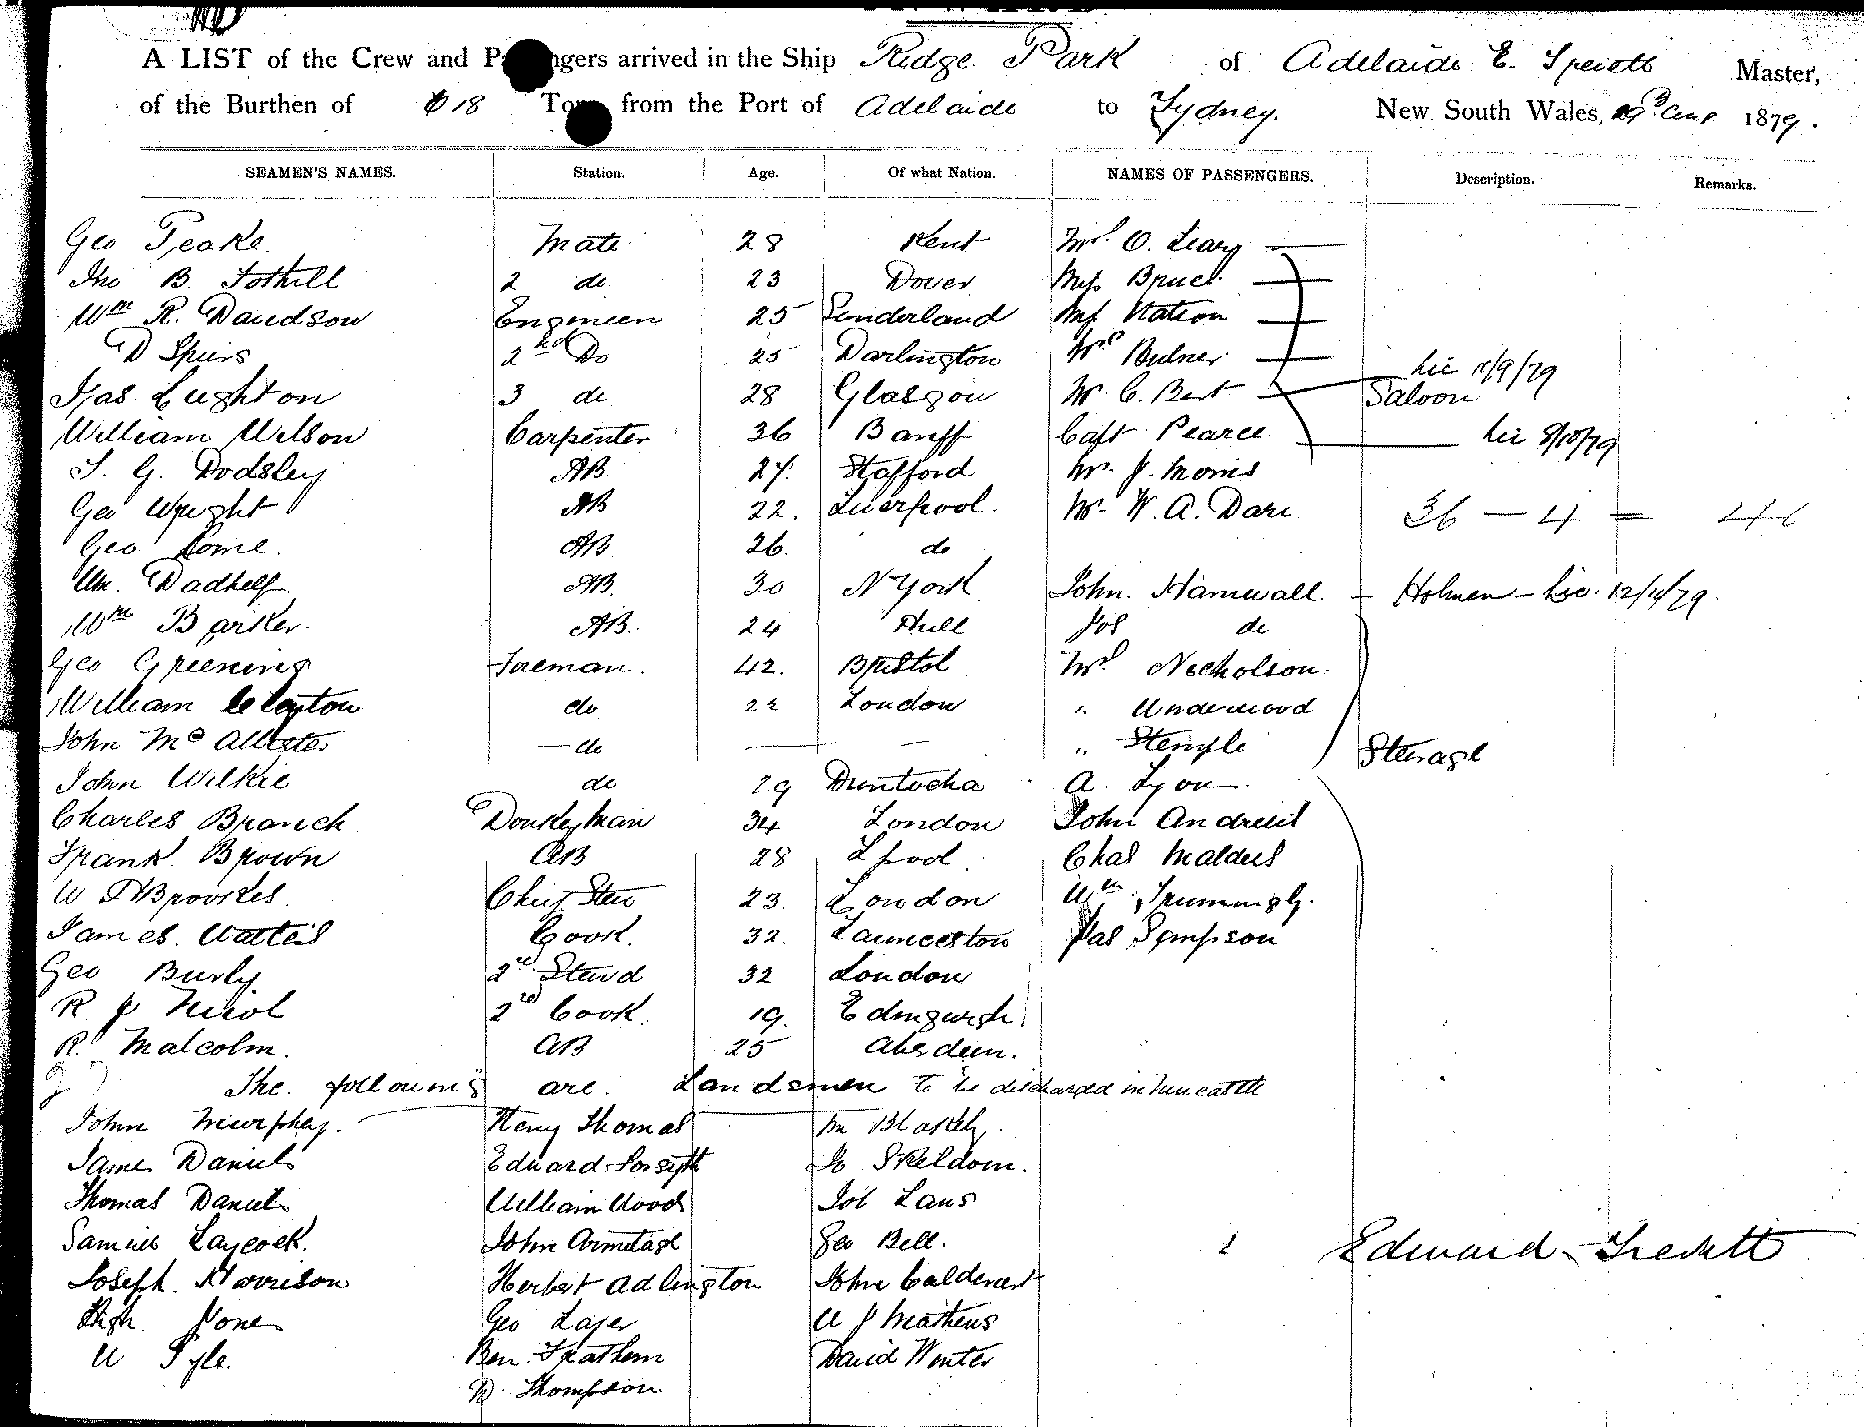 A LIST of the Crew and Passengers arrived in the Ship Ridge Park of Adelaide E. Master,
of the Burthen of 618 Tons from the Port of Adelaide to Sydney. New South Wales, Aug 1879.
SEAMEN'S NAMES. Station. Age. Of what Nation. NAMES OF PASSENGERS. Description. Remarks.
Geo Peake Mate 28 Kent Mrs O. Leary
Jno B. Tothill 2 do 23 Dover Miss Bruce
Wm R. Davidson Engineer 25 Sunderland Miss Nation
D Spiers 2nd Do 25 Darlington Mrs Bulner
lic 1/9/79
Jas Lughton 3 do 28 Glasgow Mr C. Bert Saloon
William Wilson Carpenter 36 Banff Capt Pearce lic 8/10/79
T. G. Dodsley AB 27. Stafford Mr. J. Morris
Geo Wright AB 22. Liverpool. Mr. W. A. Dare 36 — 4 =
Geo AB 26. do
Wm. AB. 30 N York John. Hamwall. — Holmen — lic. 12/11/79.
Wm Barker. AB. 24 Hull Jos do
Geo Greening Foreman. 42. Bristol Mrs Nicholson
William do London " Underwood
John McAllister — do — — " Stemple Sterage
John Wilkie do 29 Duntocha A. Lyon
Charles Branch Donkeyman 34 London John
Frank Brown AB 28 Lpool Chas
W Brookes Chief Stew 23. London Wm
James. Watters Cook. 32. Launceston Jas Sampson
Geo Burly 2nd Stewd 32 London
R J Nicol 2nd Cook. 19. Edingurgh
R. Malcolm. AB 25 Aberdeen.
The following are Landsmen to be discharged in Newcastle
John Murphey. Henry Thomas
James Daniels Edward Forsyth Jo Skeldom.
Thomas Daniels William Wood Job Laws
Samuel Laycock. John Armitage Geo Bell.
Edward
Joseph Harrison Herbert Adlington John
Hugh Jones Geo W J Mathews
W Pyle. Ben David Winter
D. Thompson